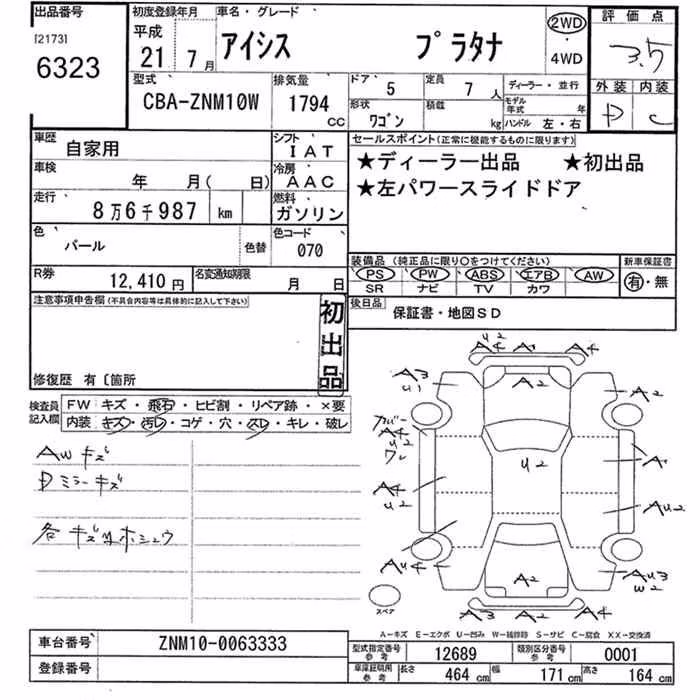 出品番号 初度登録年月 車名・グレード 評価点
[2173] 平成 2WD
6323 21年 7月 アイシス プラタナ ・ 3.5
4WD
型式 排気量 ドア 5 定員 7人 ディーラー・並行 外装 内装
CBA-ZNM10W 1794 cc 形状 ワゴン 積載 kg モデル年式 年 D C
ハンドル 左・右
車歴 自家用 シフト IAT セールスポイント(正常に機能するものに限ります)
車検 年 月( 日) 冷房 AAC ★ディーラー出品 ★初出品
走行 8万6千987 km 燃料 ガソリン ★左パワースライドドア
色 パール 色替 色コード 070
装備品 (純正品に限り○をつけてください) 新車保証書
R券 12,410円 名変通知期限 月 日 PS PW ABS エアB AW 有・無
SR ナビ TV カワ
注意事項申告欄(不具合内容等は具体的に記入して下さい) 初出品 後日品 保証書・地図SD
修復歴 有〔箇所
検査員記入欄 FW キズ・飛石・ヒビ割・リペア跡・×要
内装 キズ・汚レ・コゲ・穴・スレ・キレ・破レ
AWキズ
Dミラーキズ
各キズ凹ホシュウ
U2
A4 A1 A4
A3 U1 A2 A2
カバー A4 U2 ワレ
U2 A1
A4 U2 AU2
AU4 A2 AU3 W2
スペア A3 A2 A4
A−キズ E−エクボ U−凹み W−補修跡 S−サビ C−腐食 XX−交換済
車台番号 ZNM10-0063333 型式指定番号 参考 12689 類別区分番号 参考 0001
登録番号 車庫証明用 参考 長さ 464 cm 幅 171 cm 高さ 164 cm